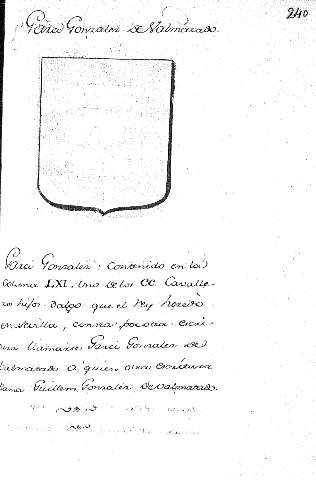 240
Garci Gonzales de Valmacado.
Garci Gonzales: Contenido en la
Coluna LXI. Uno de los CC Cavalle-
ros hijos-dalgo que el Rey heredò
en Sevilla, con una
llamanse Garci Gonzales de
Valmacado a quien otras escrituras
llama Guillem Gonzales de Valmacado.